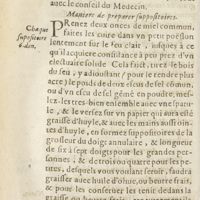 auec le conseil du Medecin.
Maniere de preparer suppositoires.
Prenez deux onces de miel commun,
faites les cuire dans vn petit poëslon
lentement sur le feu clair, iusques à ce
qu'il acquiere consistance à peu prez d'vn
electuaire solide Cela faict, tirez le hors
du feu, y adioustant / pour le rendre plus
acre) le poids de deux escus de sel commun,
ou d'vn escu de sel gême en poudre, & les
mesleres tres-bien ensemble auec vne spatu-
le, & le versez sur vn papier qui aura esté
graissé d'huyle, & auec les mains oinctes
en huyle, en formez suppositoires de la
grosseur du doigt annulaire, & longueur
de six à sept doigts pour les grandes per-
sonnes, & de deux ou quatre pour les pe-
tites, desquels vous voulant seruir, faudra
graisser auec huile d'oliue, ou beurre frais,
& pour les conseruer les tenir dedans la
Chaque
suppositoire
6. den.